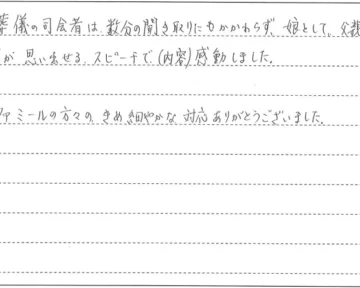 葬儀の司会者は数分の聞き取りにもかかわらず、娘として、父親
が思い出せる、スピーチで、(内容)感動しました。
ファミールの方々の、きめ細やかな対応ありがとうございました。